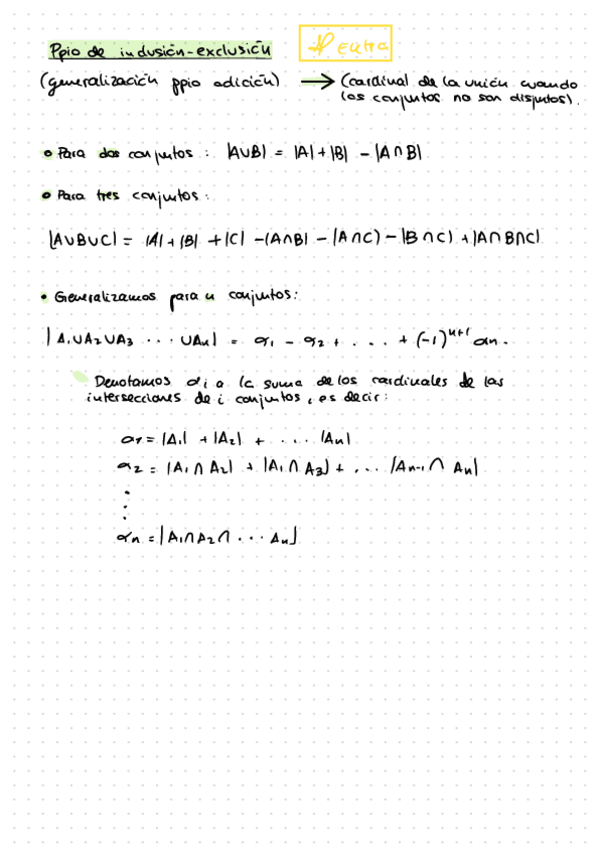 Ppio de inclusión-exclusión
* Extra
(generalización ppio adición) → (cardinal de la unión cuando
los conjuntos no son disjuntos).
• Para dos conjuntos : |A∪B| = |A|+|B| - |A∩B|
• Para tres conjuntos:
|A∪B∪C| = |A|+|B| +|C| -|A∩B| - |A∩C) - |B∩C) + |A∩B∩C|
• Generalizamos para n conjuntos:
|A₁∪A₂∪A₃ ... ∪Aₙ| = α₁ - α₂ + ... + (-1)ⁿ⁺¹ αₙ.
Denotamos αi a la suma de los cardinales de las
intersecciones de i conjuntos, es decir:
α₁ = |A₁| + |A₂| + .... |Aₙ|
α₂ = |A₁∩A₂| + |A₁∩A₃| + ... |Aₙ₋₁∩Aₙ|
⋮
αₙ = |A₁∩A₂∩ ... Aₙ|